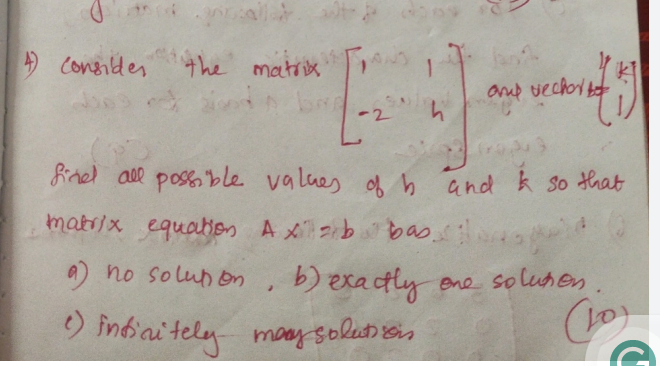 4) Consider the matrix [1 1 and vector b = [k
-2 h] 1]
find all possible values of h and k so that
matrix equation A x = b has
a) no solution, b) exactly one solution.
c) infinitely many solutions (10)